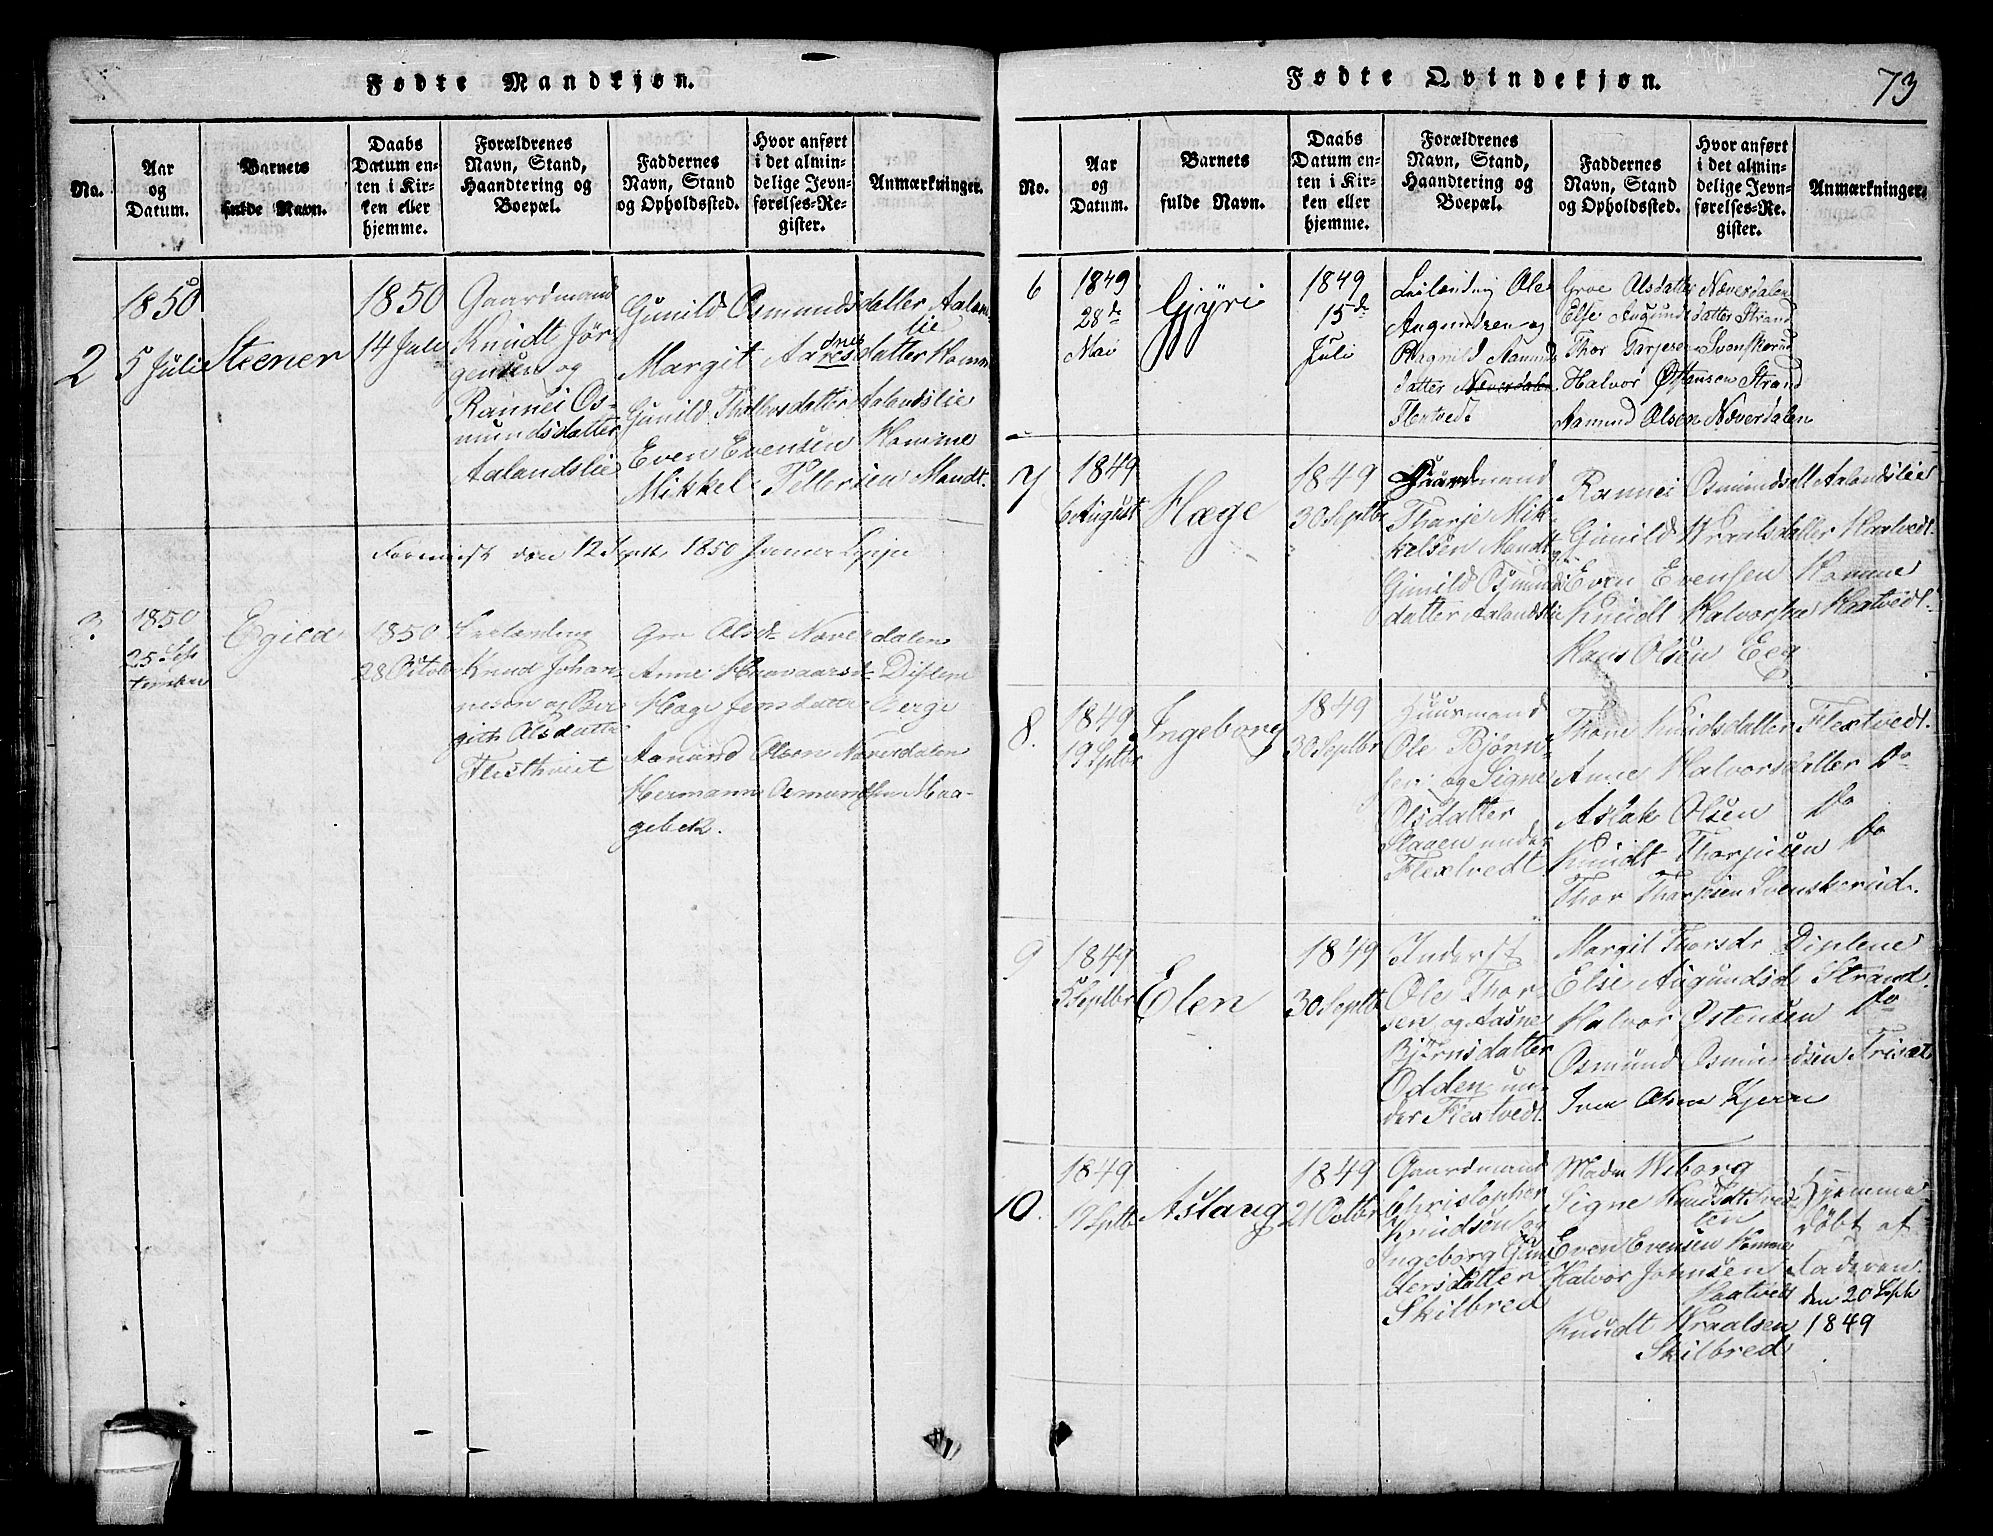 Fødte Mandkjøn.
No.
Aar
og
Datum.
Barnets
fulde Navn.
Daabs
Datum en-
ten i Kir-
ken eller
hjemme.
Forældrenes
Navn, Stand,
Haandtering og
Boepæl.
Faddernes
Navn, Stand
og Opholdssted.
Hvor anført
i det almin-
delige Jevn-
førelses-Re-
gister.
Anmærkninger.
2
1850
5 Julie
Steener
1850
14 Juli
Gaardmand
Knudt Jør-
gensen og
Rannei Os-
mundsdatter
Aalandslie
Gunild Osmundsdatter Aalands-
lie
Margit datter Homme
Gunild datter Aalandslie
Even Evensen Homme
Mikkel Pettersen Mandt.
den 12 Septb 1850
3.
1850
25 Sep-
tember
Egild
1850
28 October
Knud Johan-
nesen og Ber-
gith Olsdatter
Gro Olsdr Næverdalen
Anne Haavaarsdr Diplene
Hæge Jensdatter Berge
Aanund Olsen Næverdalen
Hermann Osmundsen Haa-
gebek.
Fødte Qvindekjøn.
73
No.
Aar
og
Datum.
Barnets
fulde Navn.
Daabs
Datum en-
ten i Kir-
ken eller
hjemme.
Forældrenes
Navn, Stand,
Haandtering og
Boepæl.
Faddernes
Navn, Stand
og Opholdssted.
Hvor anført
i det almin-
delige Jevn-
førelses-Re-
gister.
Anmærkninger.
6
1849
28de
Mai
Gjyri
1849
15de
Juli
Leilænding Ole
Augundsen og
Ragnild Aamunds
datter Næverdalen
Flextvedt
Groe Olsdatter Næverdalen
Else Augundsdatter Strand
Thor Tarjesen Svenskerud
Halvor Østensen Strand
Aamund Olsen Næverdalen
7
1849
6 August
Hæge
1849
30 Septbr
Gaardmand
Tharje Mik-
kelsen Mandt
og
Gunild Osmunds
datter Aalandslie
Rannei Osmundsdtr Aalandslie
Gunild Wraalsdatter Haatvedt.
Even Evensen Homme
Knudt Halvorsen Haatvedt.
Hans Olsen Eeg
8.
1849
19 Septbr
Ingeborg
1849
30 Septbr
Huusmand
Ole Bjørn-
sen og Signe
Olsdatter
Slaaen under
Flextvedt
Thone Knudsdatter Flextvedt.
Anne Halvorsdatter Do
Aslak Olsen Do
Knudt Thorjusen Do
Thor Tharjesen Svenskerud.
9
1849
5 Septbr
Elen
1849
30 Septbr
Inderst
Ole Thor-
sen og Aasne
Bjørnsdatter
Odden un-
der Flextvedt.
Margit Thorsdr Diplene
Else Augundsd Strand.
Halvor Østensen Do
Osmund Osmundsen Trisæt
Iver Olsen Kjerre
10.
1849
19 Septbr
Aslaug
1849
21 Octbr
Gaardmand
Christopher
Knudsen og
Ingeborg Gun-
dersdatter
Skilbred
Madm Wiborg
Signe Knudsdtr
ten
Even Evensen Homme
Halvor Johnsen
Haatvedt
Knudt Wraalsen
Skilbred
Hjemme
døbt af
Faderen
den 20 Septb
1849